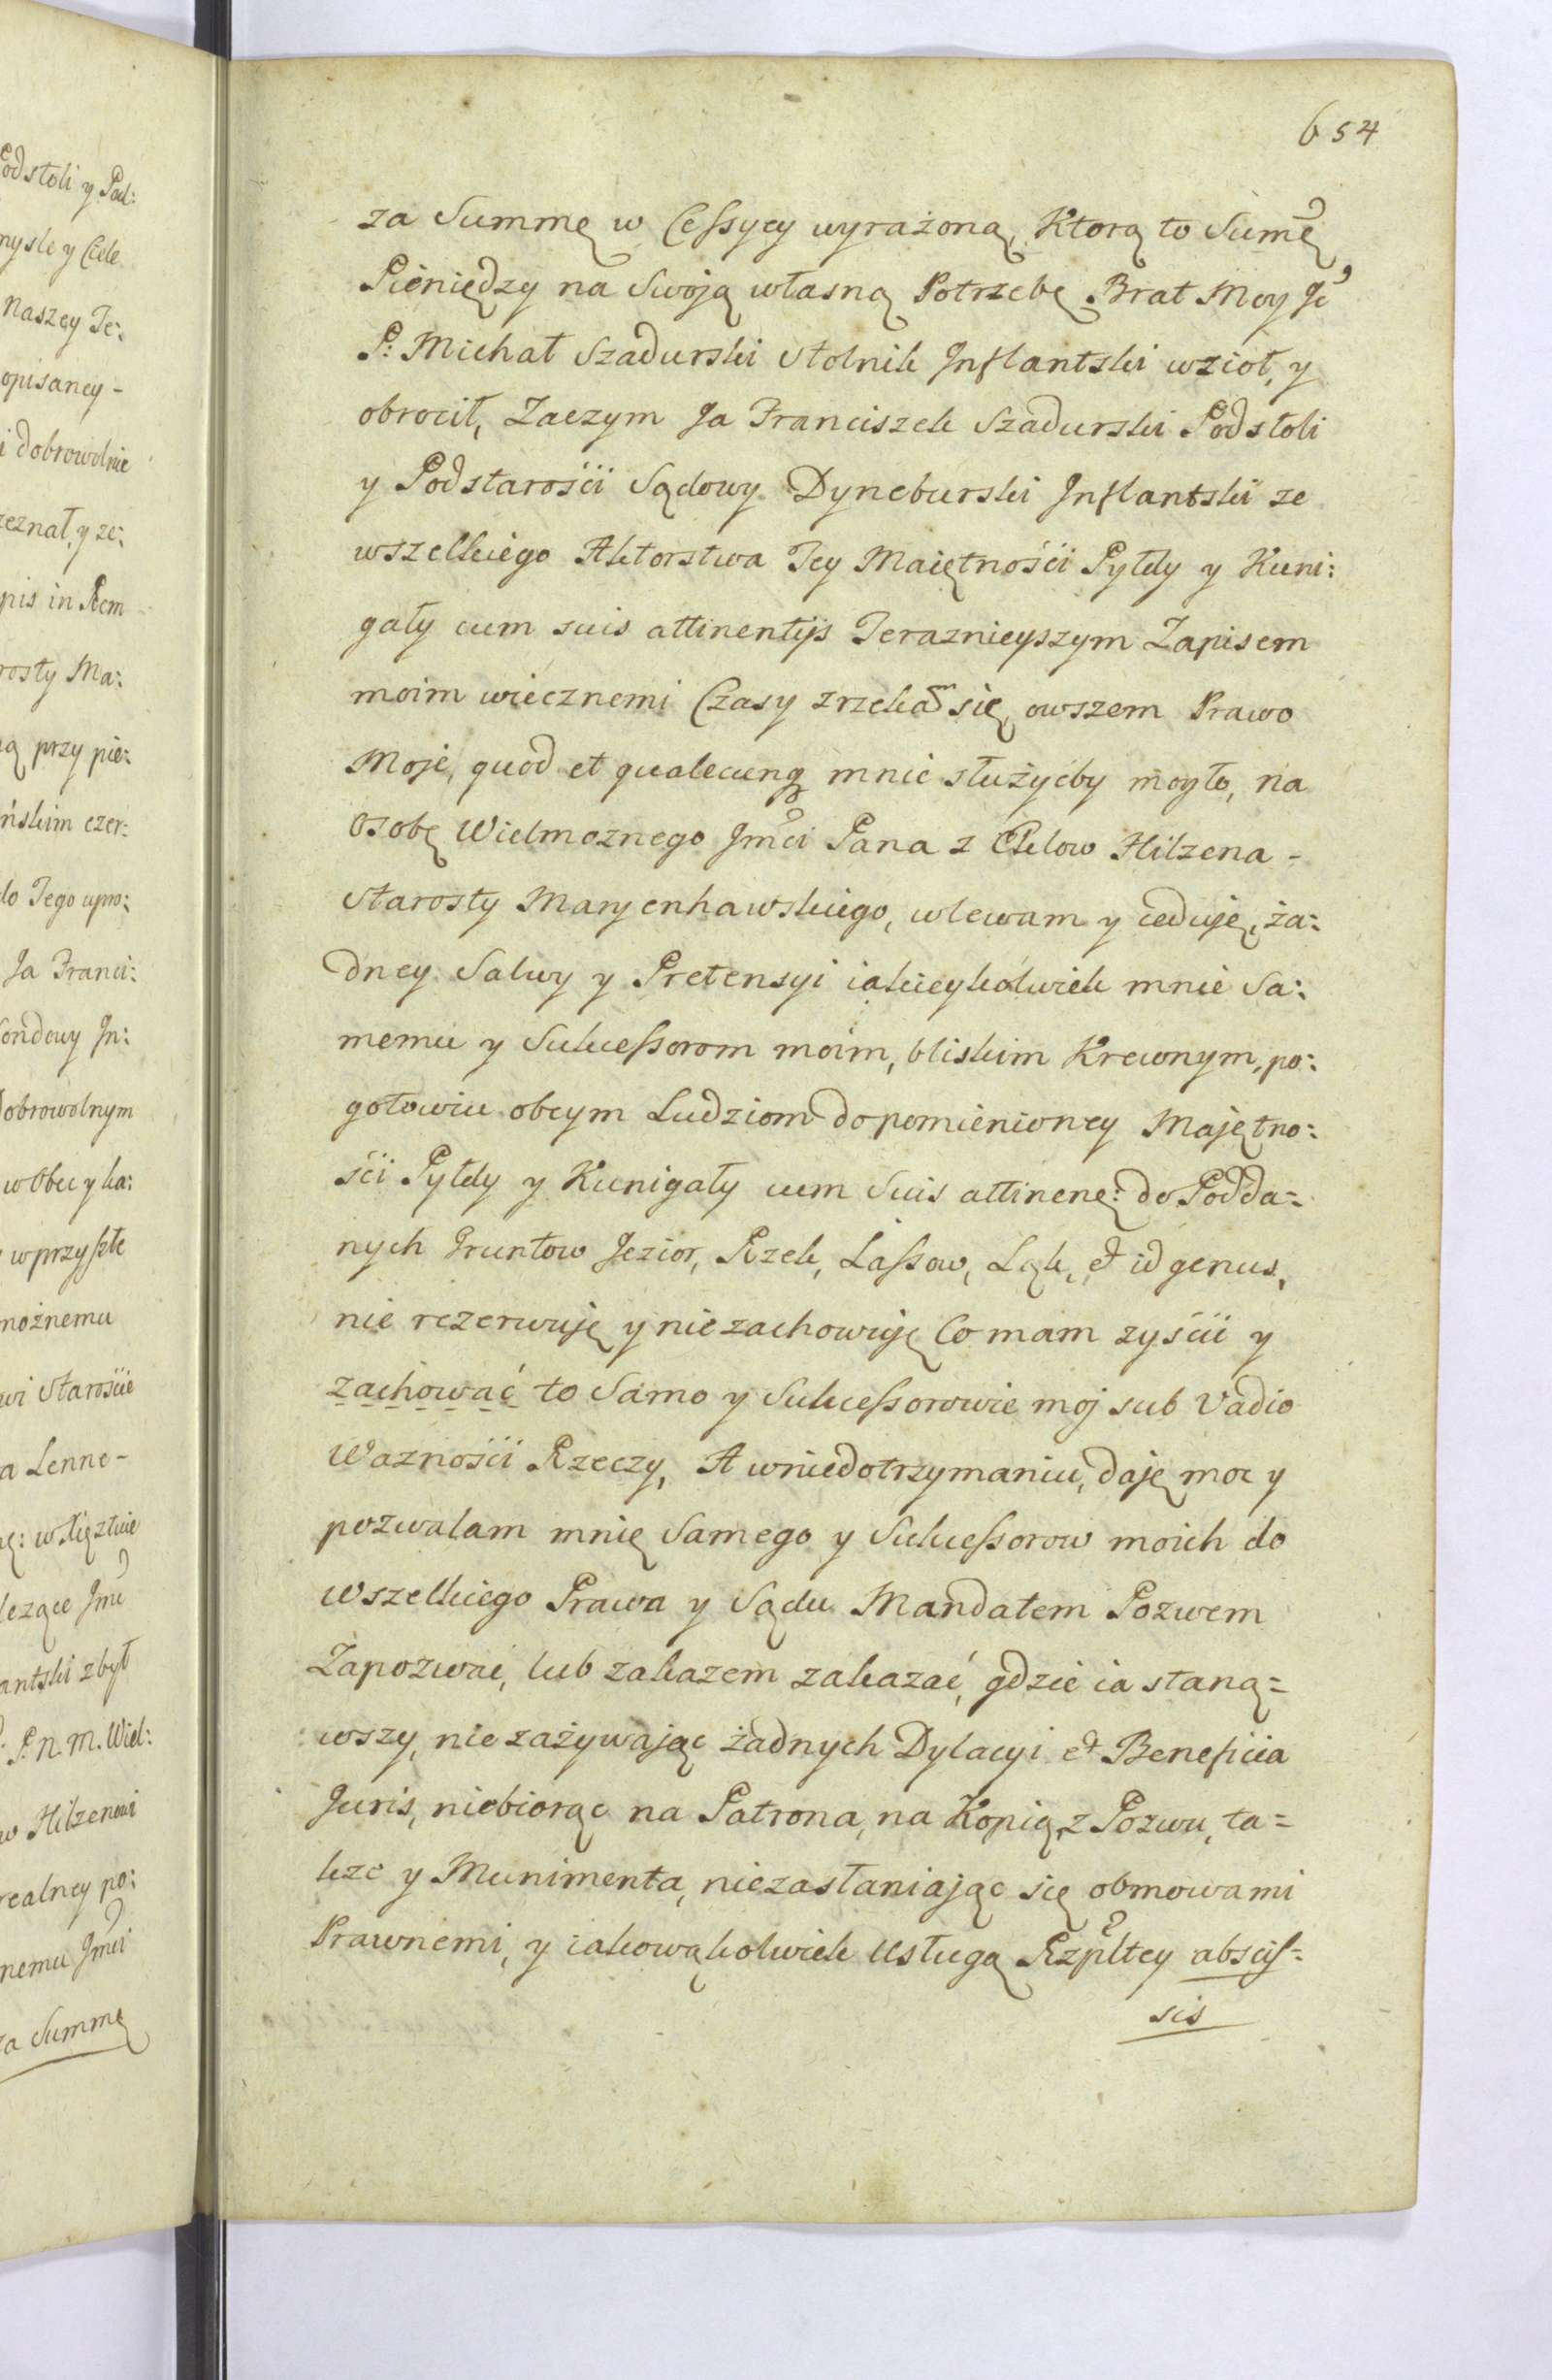 654
za Summę w Cessyey wyrażoną, Ktorą to Sumę
Pieniędzy na Swoją własną Potrzebę Brat Moy Jc
P: Michał Szadurski Stolnik Inflantski wzioł, y
obrocił, Zaczym Ja Franciszek Szadurski Podstoli
y Podstarości Sądowy Dyneburski Inflantski ze
wszelkiego Aktorstwa Tey Maiętności Pyłdy y Kuni:
gały cum suis attinentijs Teraznieyszym Zapisem
moim wiecznemi Czasy zrzekam się, owszem Prawo
Moje, quod et qualecunq mnie służyćby mogło, na
osobę Wielmoznego Jmci Pana z Eklow Hilzena -
Starosty Maryenhawskiego, wlewam y ceduję, ża:
dney Salwy y Pretensyi iakieykolwiek mnie Sa:
memu y Sukcessorom moim, bliskim Krewnym, po:
gotowiu obcym Ludziom do pomienioney Majętno:
ści Pyłdy y Kunigały cum Suis attinenę: do Podda=
nych Gruntow Jezior, Rzek, Lassow, Ląk, et id genus,
nie rezerwuję y nie zachowuję Co mam zyścić y
zachować to Samo y Sukcessorowie moj sub Vadio
Wazności Rzeczy, A wniedotrzymaniu, daję moc y
pozwalam mnię Samego y Sukcessorow moich do
wszelkiego Prawa y Sądu Mandatem Pozwem
Zapozwać, lub zakazem zakazać, gdzie ia staną=
wszy, nie zażywając żadnych Dylacyi et Beneficia
Juris, niebiorąc na Patrona, na Kopią z Pozwu, ta=
kze y Munimenta, niezasłaniając się obmowami
Prawnemi, y iakowąkolwiek Usługą Rzpltey abscis=
sis
Podstoli y Pod:
mysle y Ciele
naszey Te:
opisaney -
i dobrowolnie
zeznał, y ze:
pis in Rem
rosty Ma:
ą przy pie:
ńskim czer:
do Tego upro:
Ja Franci:
Sondowy In:
dobrowolnym
w Obec y ka:
w przyszłe
możnemu
wi Staroście
a Lenne -
nę: w Xięztwie
lezące Jmć
antski zbył
P. n. M. Wiel:
w Hilzenowi
realney po:
nemu Jmci
za Summę